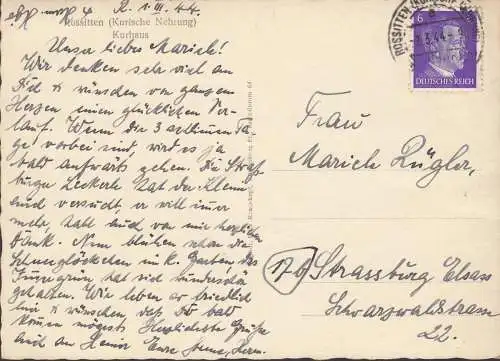 R. 1. III. 44.
Rossitten (Kurische Nehrung)
Kurhaus
Unser liebes Mariele!
Wir denken sehr viel an
Dich & wünschen von ganzem
Herzen einen glücklichen Ver-
lauf. Wenn die 3 schlimmen Ta-
ge vorbei sind, wird es ja
bald aufwärts gehen. Die Straß-
burger Leckerle hat der Kleine
versucht, er will immer
mehr, habt von mir herzlichen
Dank. Nun blühen schon die
Schneeglöckchen im K. Garten, das
Immergrün hat sich wunderschön
gehalten. Wir leben so friedlich
hier & wünschen, daß Du bald
kommen mögest. Herzlichste Grüße
auch an Eure
ROSSITTEN
1.3.44
6
DEUTSCHES REICH
Frau
Mariele Rügler,
17b Strassburg Elsass
Schwarzwaldstrasse
22.